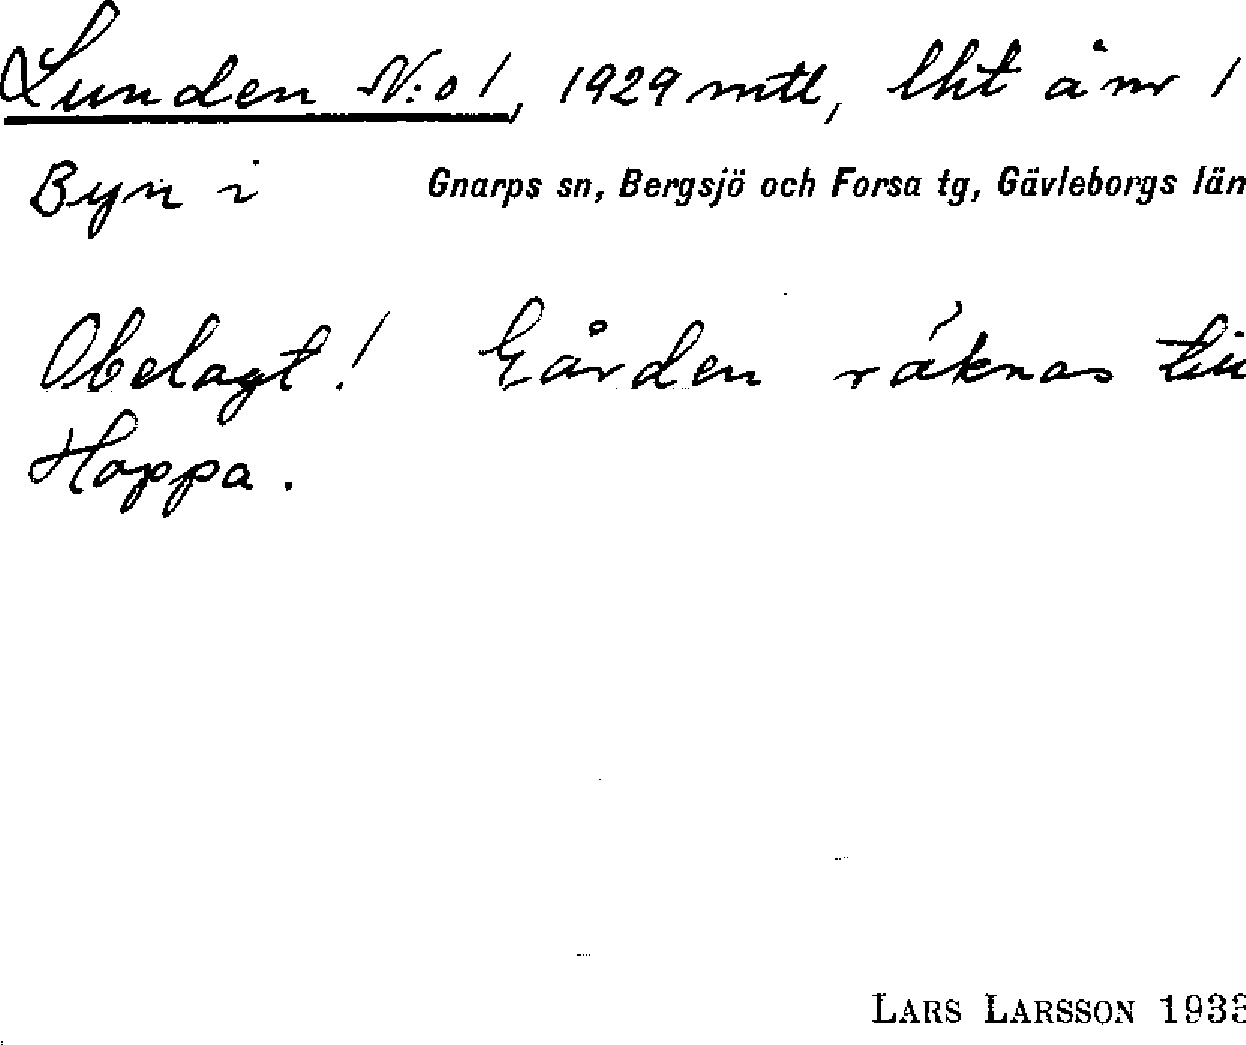 Lunden N:o 1, 1929 mtl, lht å nr 1
Byn i Gnarps sn, Bergsjö och Forsa tg, Gävleborgs län
Obelagt! Gården räknas till
Happa.
LARS LARSSON 1933